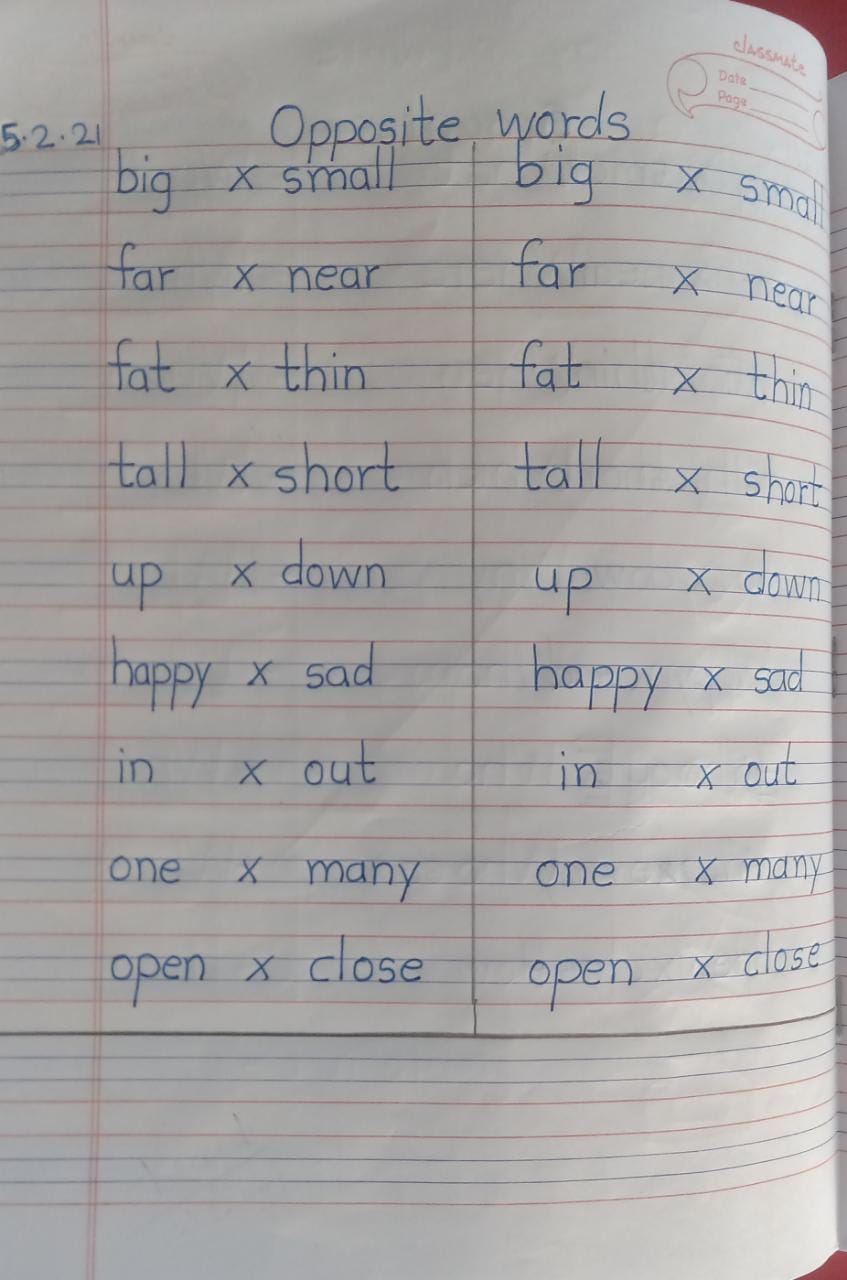 classmate
Date
Page
5.2.21 Opposite words
big x small big x small
far x near far x near
fat x thin fat x thin
tall x short tall x short
up x down up x down
happy x sad happy x sad
in x out in x out
one x many one x many
open x close open x close